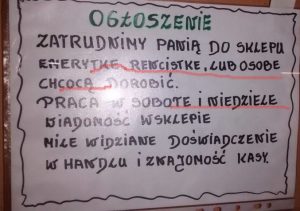 OGŁOSZENIE
ZATRUDNIMY PANIĄ DO SKLEPU
EMERYTKE, RENCISTKE, LUB OSOBE
CHCOCĄ DOROBIĆ.
PRACA W SOBOTE I NIEDZIELE
WIADOMOŚĆ W SKLEPIE
MILE WIDZIANE DOŚWIADCZENIE
W HANDLU I ZNAJOMOŚĆ KASY.